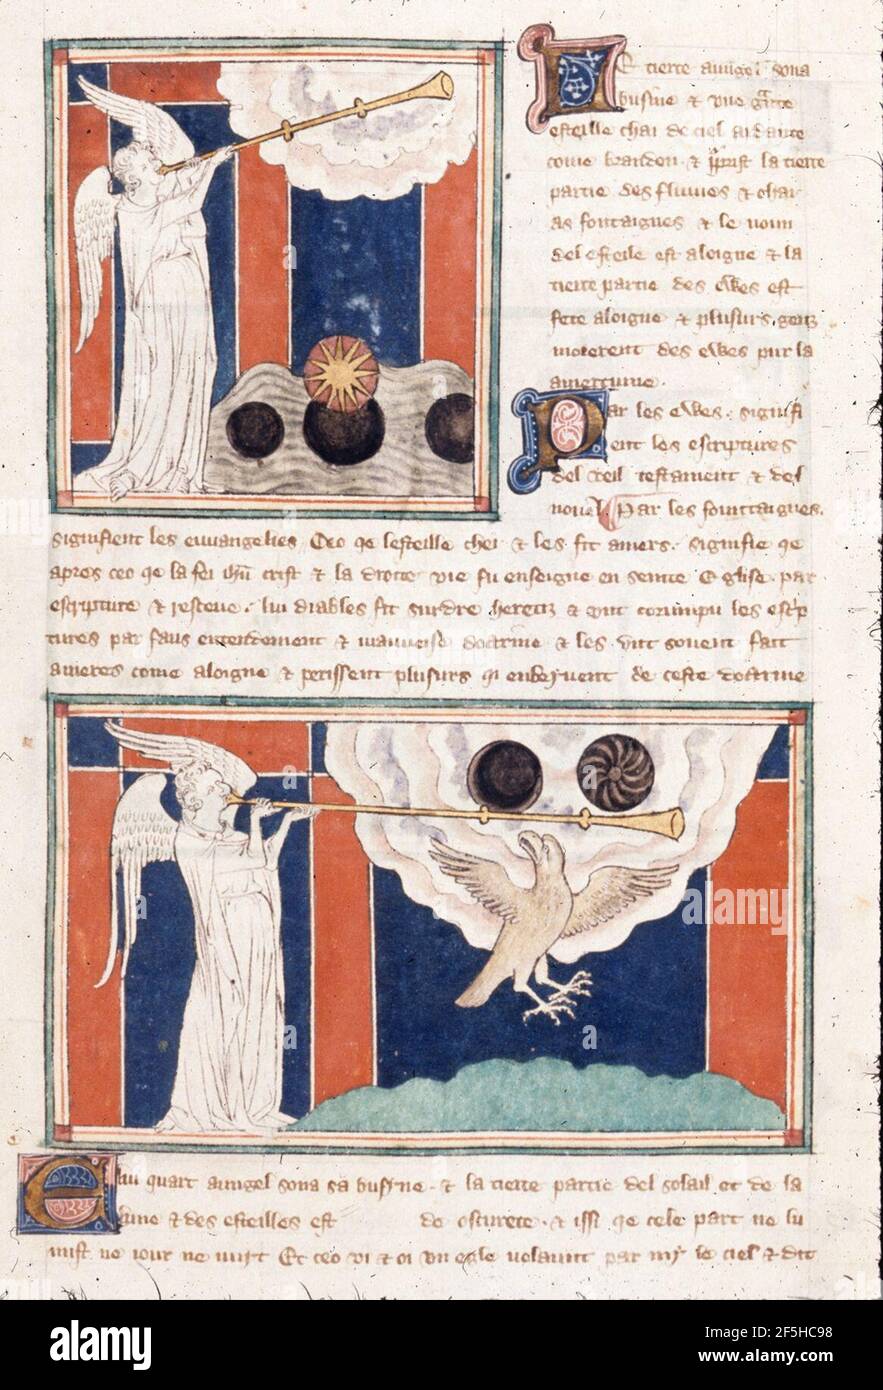 E tierce aungel sona
busine & une g'nte
esteille chai de ciel ardante
come brandon · & p'ist la tierce
partie des fluives & chai
as fontaignes & le noun
del esteile est aloigne & la
tierce partie des ewes est
fete aloigne & plusurs genz
morerent des ewes pur la
amertume ·
Par les ewes · signifi
ent les escriptures
del veil testament & del
nouel · Par les fountaignes
signifient les ewangelies · Ceo qe lesteille chei & les fit amers · signifie qe
apres ceo qe la fei ihu crist & la droite vie fu enseigne en seinte Eglise par
escripture & resceue · lui diables fit surdre heretiz & unt corumpu les escrip
tures par faus entendement & mauueise doctrine & les unt souent fait
ameres come aloigne & perissent plusurs qi enbeyuent de ceste doctrine
E lui quart aungel sona sa busyne · & la tierce partie del solail et de la
lune & des esteilles est de oscurete · & issi qe cele part ne lu
mist ne iour ne nuyt Et ceo vi & oi un egle uolaunt par my le ciel & dit
alamy
alamy
Image ID: 2F5HC98
www.alamy.com